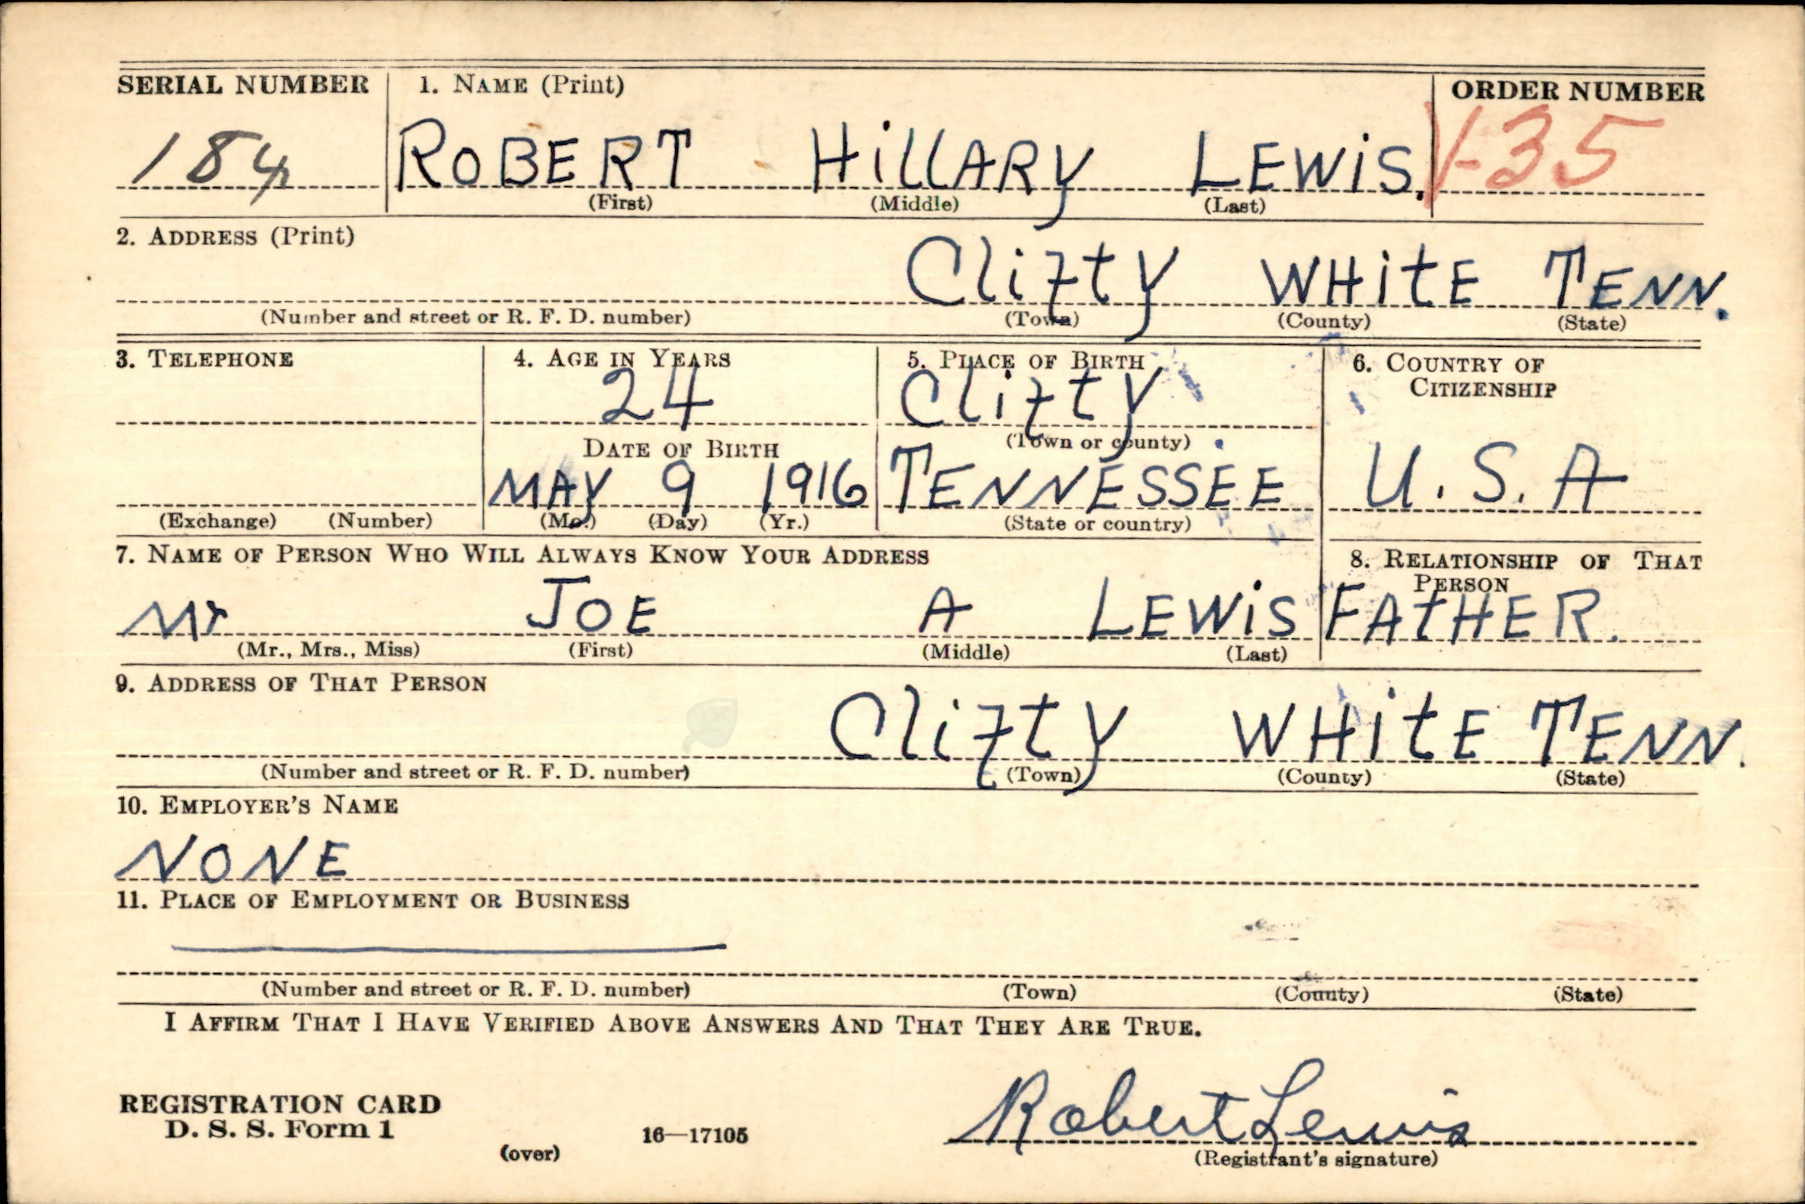 SERIAL NUMBER 1. NAME (Print) ORDER NUMBER
184 ROBERT HillARY LEWiS. V-35
(First) (Middle) (Last)
2. ADDRESS (Print)
Clifty WHitE TENN.
(Number and street or R. F. D. number) (Town) (County) (State)
3. TELEPHONE 4. AGE IN YEARS 5. PLACE OF BIRTH 6. COUNTRY OF
CITIZENSHIP
24 Clifty
DATE OF BIRTH (Town or county)
MAY 9 1916 TENNESSEE U.S.A
(Exchange) (Number) (Mo.) (Day) (Yr.) (State or country)
7. NAME OF PERSON WHO WILL ALWAYS KNOW YOUR ADDRESS 8. RELATIONSHIP OF THAT
PERSON
Mr JOE A LEWiS FAtHER.
(Mr., Mrs., Miss) (First) (Middle) (Last)
9. ADDRESS OF THAT PERSON
Clifty WHitE TENN.
(Number and street or R. F. D. number) (Town) (County) (State)
10. EMPLOYER'S NAME
NONE
11. PLACE OF EMPLOYMENT OR BUSINESS
(Number and street or R. F. D. number) (Town) (County) (State)
I AFFIRM THAT I HAVE VERIFIED ABOVE ANSWERS AND THAT THEY ARE TRUE.
REGISTRATION CARD
D. S. S. Form 1 16—17105 Robert Lewis
(over) (Registrant's signature)